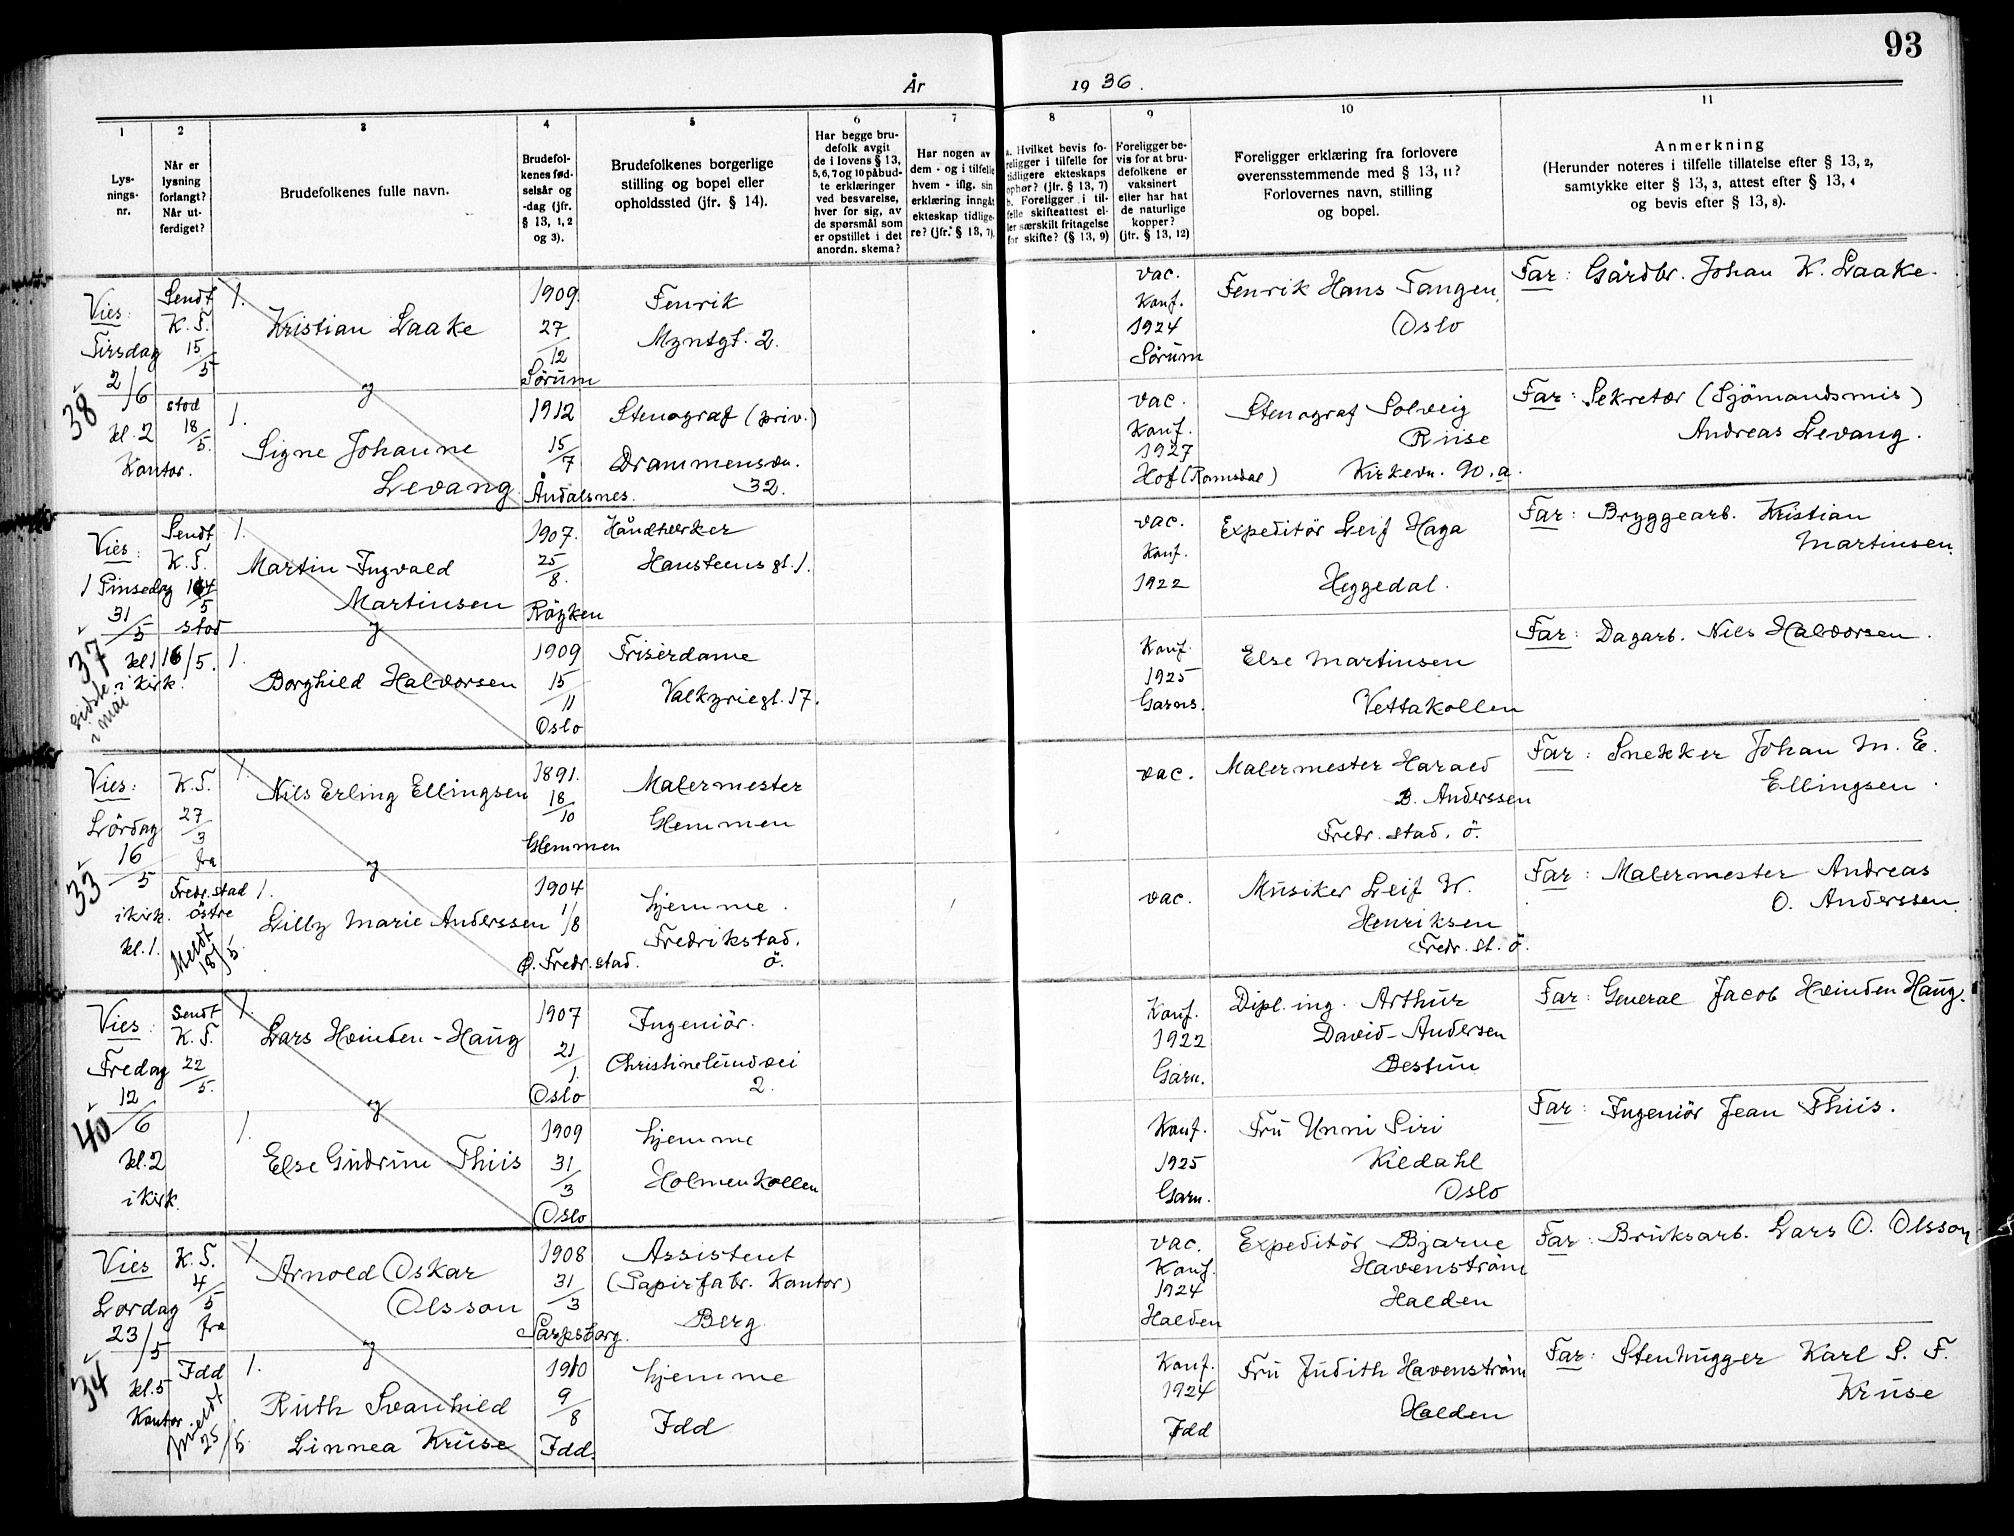 93
År 1936.
1
Lys-
nings-
nr.
2
Når er
lysning
forlangt?
Når ut-
ferdiget?
3
Brudefolkenes fulle navn.
4
Brudefol-
kenes fød-
selsår og
-dag (jfr.
§ 13, 1, 2
og 3).
5
Brudefolkenes borgerlige
stilling og bopel eller
opholdssted (jfr. § 14).
6
Har begge bru-
defolk avgit
de i lovens § 13,
5, 6, 7 og 10 påbud-
te erklæringer
ved besvarelse,
hver for sig, av
de spørsmål som
er opstillet i det
anordn. skema?
7
Har nogen av
dem - og i tilfelle
hvem - iflg. sin
erklæring inngåt
ekteskap tidlige-
re? (jfr. § 13, 7).
8
a. Hvilket bevis fo-
religger i tilfelle for
tidligere ekteskaps
ophør? (jfr. § 13, 7)
b. Foreligger i til-
felle skifteattest el-
ler særskilt fritagelse
for skifte? (§ 13, 9)
9
Foreligger be-
vis for at bru-
defolkene er
vaksinert
eller har hat
de naturlige
kopper?
(jfr. § 13, 12)
10
Foreligger erklæring fra forlovere
overensstemmende med § 13, 11?
Forlovernes navn, stilling
og bopel.
11
Anmerkning
(Herunder noteres i tilfelle tillatelse efter § 13, 2,
samtykke efter § 13, 3, attest efter § 13, 4
og bevis efter § 13, 8).
38
Vies:
Tirsdag
2/6
kl. 2
Kontor.
Sendt
K. T.
15/5
stod
18/5.
1.
Kristian Laake
1909.
27/12
Sørum
Fenrik
Myntgt. 2.
vac.
Konf.
1924
Sørum
Fenrik Hans Tangen,
Oslo
Far: Gårdbr. Johan K. Laake.
og
1.
Signe Johanne
Levang
1912
15/7
Åndalsnes.
Stenograf (priv.)
Drammensvn.
32.
vac.
Konf.
1927
Hof (Romsdal)
Stenograf Solveig
Riise
Kirkevn. 90.a.
Far: Sekretær (Sjömandsmis)
Andreas Levang.
37
sidste
i mai
Vies:
1 Pinsedag
31/5
kl. 1
i Kirk.
Sendt
K. T.
14/5
stod
16/5.
1.
Martin Ingvald
Martinsen
1907.
25/8.
Röyken
Håndverker
Hansteensgt. 1.
vac.
Konf.
1922
Expeditör Leif Haga
Heggedal.
Far: Bryggearb. Kristian
Martinsen.
og
1.
Borghild Halvorsen
1909
15/11
Oslo
Friserdame
Valkyriegt. 17.
Konf.
1925
Else Martinsen
Vettakollen
Far: Dagarb. Nils Halvorsen.
33
Vies:
Lördag
16/5
i kirk.
kl. 1.
K. T.
27/3
fra
Fredr.stad
östre
Meldt
18/5.
1.
Nils Erling Ellingsen
1891.
18/10
Glemmen
Malermester
Glemmen
vac.
Malermester Harald
B. Anderssen
Fredr. stad. ö.
Far: Snekker Johan M. E.
Ellingsen.
og
1.
Lilly Marie Anderssen
1904
1/8
Ö. Fredr.stad.
hjemme.
Fredrikstad.
ö.
vac.
Musiker Leif W.
Henriksen
Fredr. st. ö.
Far: Malermester Andreas
O. Anderssen.
40
Vies:
Fredag
12/6
kl. 2
i Kirk.
Sendt
K. T.
22/5.
1.
Lars Hvinden-Haug
1907
21/1.
Oslo
Ingeniör.
Christinelundvei
2.
Konf.
1922
Garn.
Dipl. ing. Arthur
David-Andersen
Bestun
Far: General Jacob Hvinden Haug.
og
1.
Else Gudrun Thiis
1909
31/3
Oslo
hjemme
Holmenkollen
Konf.
1925
Garn.
Fru Unni Siri
Kildahl
Oslo
Far: Ingeniör Jean Thiis.
34
Vies
Lördag
23/5
kl. 5
Kontor
K. T.
4/5
fra
Idd
meldt
25/5.
1.
Arnold Oskar
Olsson
1908
31/3
Sarpsborg.
Assistent
(Papirfabr. Kontor)
Berg
vac.
Konf.
1924
Halden
Expeditör Bjarne
Havenström
Halden
Far: Bruksarb. Lars O. Olsson
og
1.
Ruth Svanhild
Linnea Kruse
1910
9/8
Idd.
hjemme
Idd
Konf.
1924
Idd
Fru Judith Havenström
Halden
Far: Stenhugger Karl S. F.
Kruse